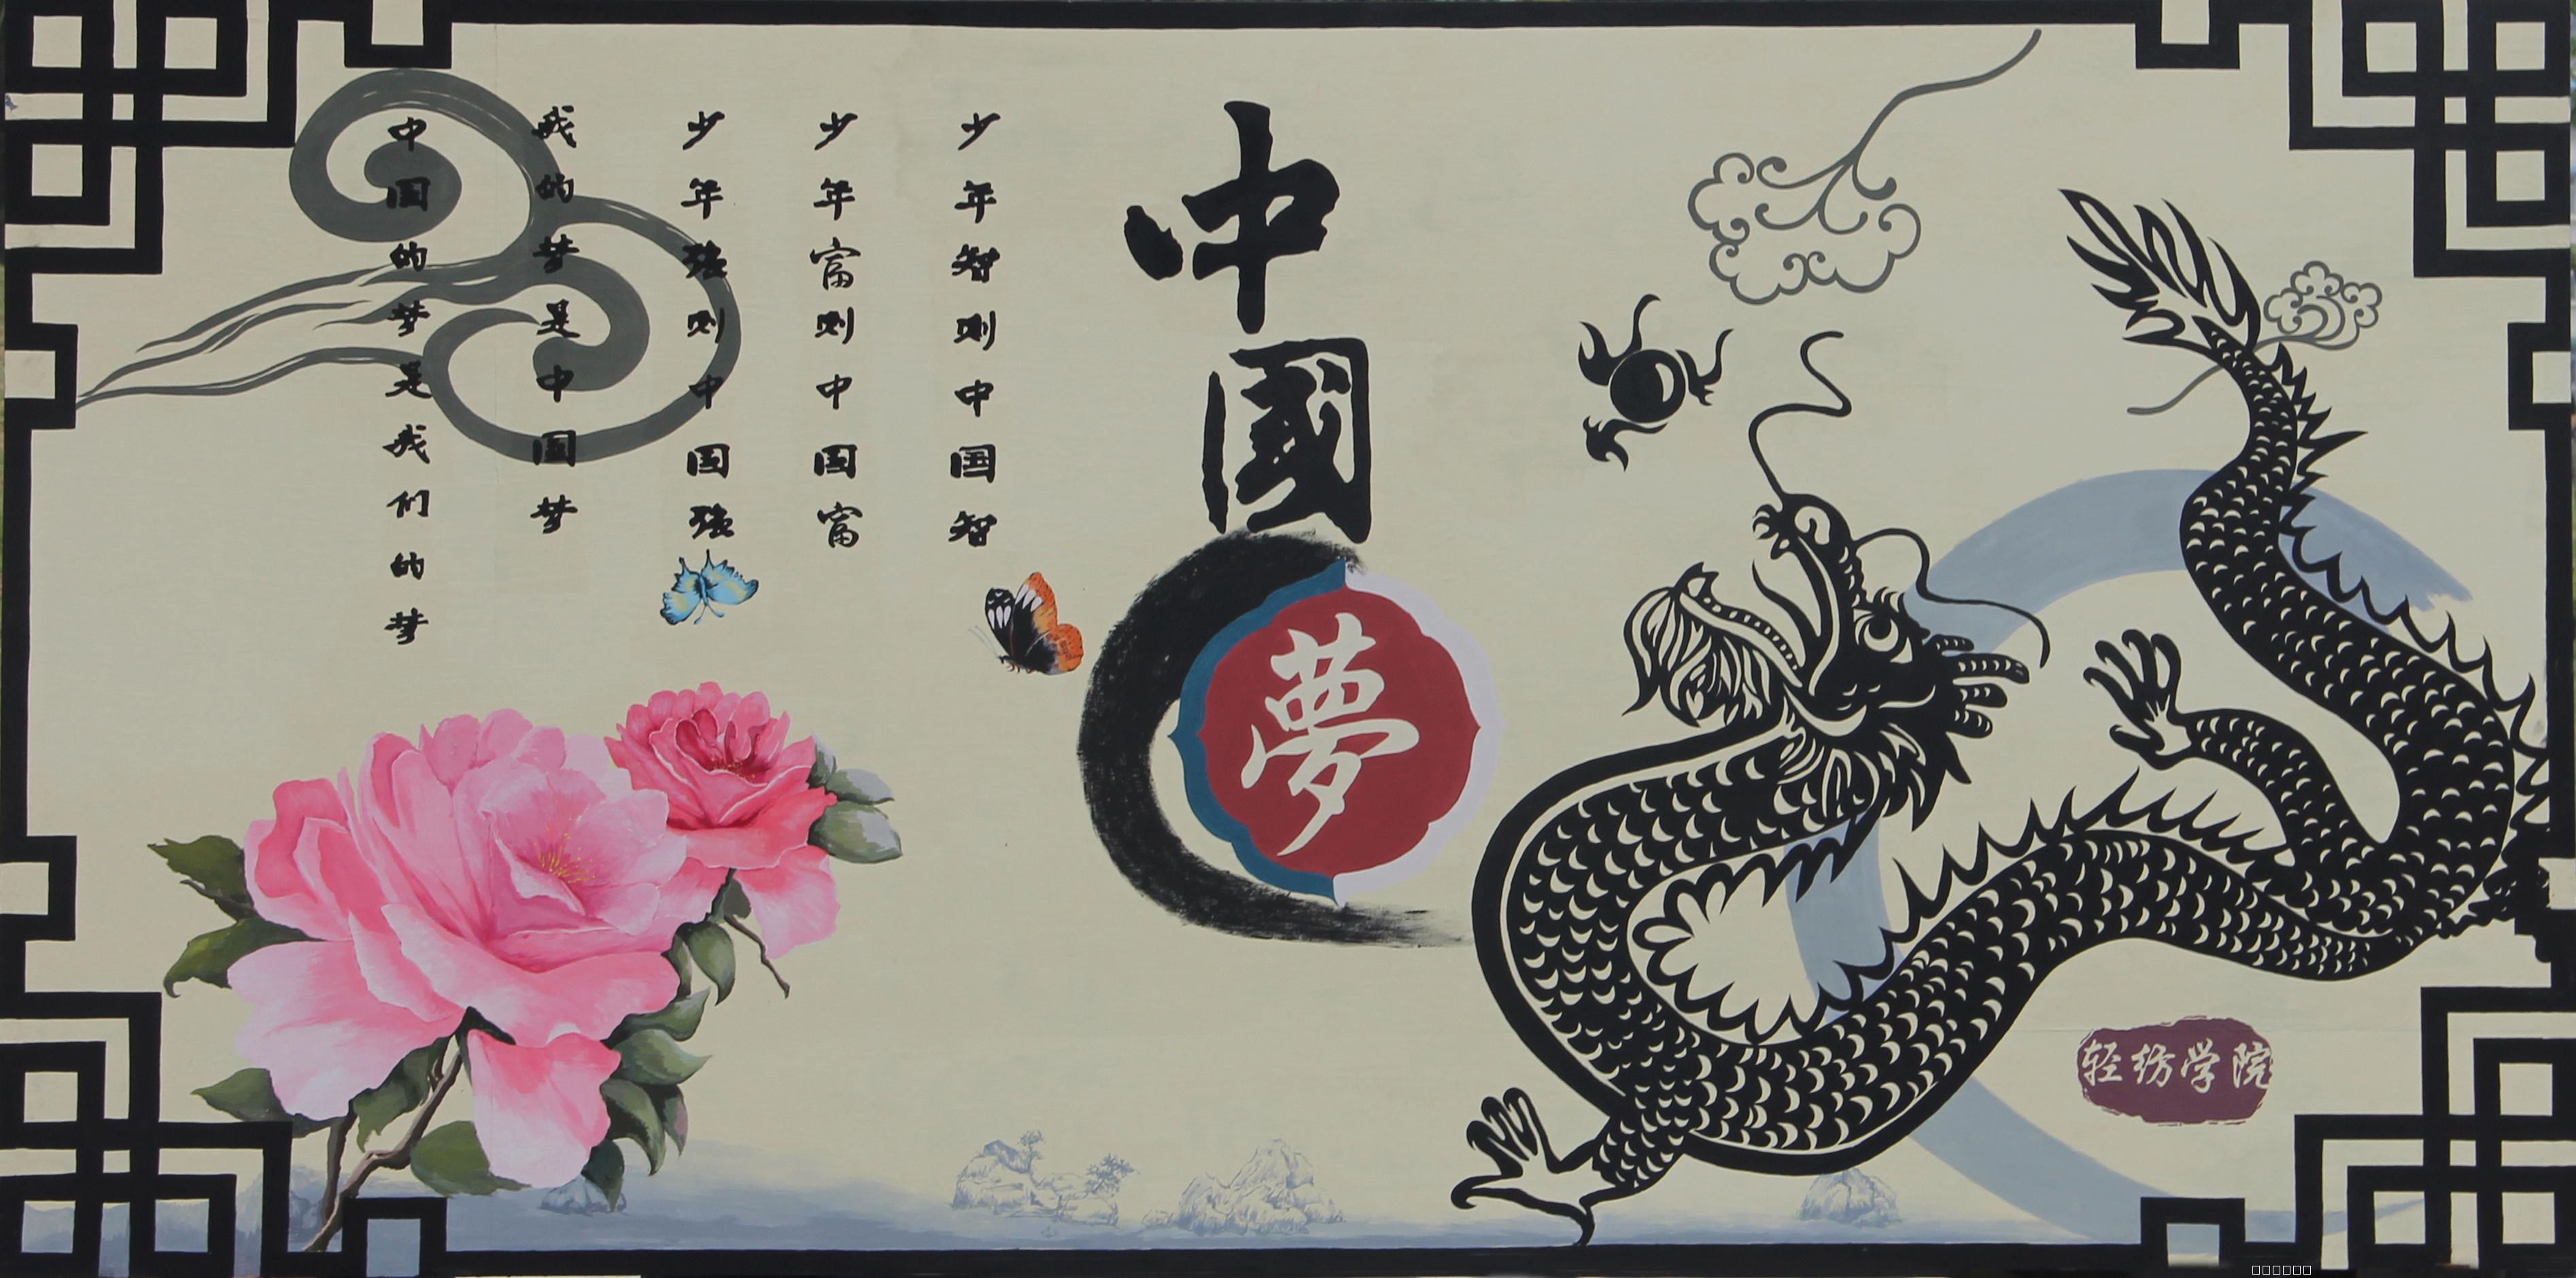 中國夢
少年智则中国智
少年富则中国富
少年强则中国强
我的梦是中国梦
中国的梦是我们的梦
轻纺学院